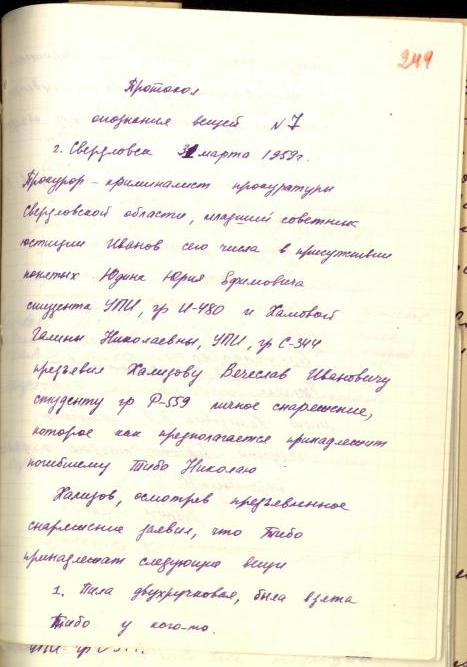 249
Протокол
опознания вещей № 7
г. Свердловск 31 марта 1959г.
Прокурор-криминалист прокуратуры
Свердловской области, младший советник
юстиции Иванов сего числа в присутствии
понятых Юдина Юрия Ефимовича
студента УПИ, гр И-480 и Хамовой
Галины Николаевны, УПИ, гр С-344
предъявил Хализову Вечеслав Ивановичу
студенту гр Р-559 личное снаряжение,
которое как предполагается принадлежит
погибшему Тибо Николаю
Хализов, осмотрев предъявленное
снаряжение заявил, что Тибо
принадлежат следующие вещи
1. Пила двухручковая, была взята
Тибо у кого-то.
УПИ гр